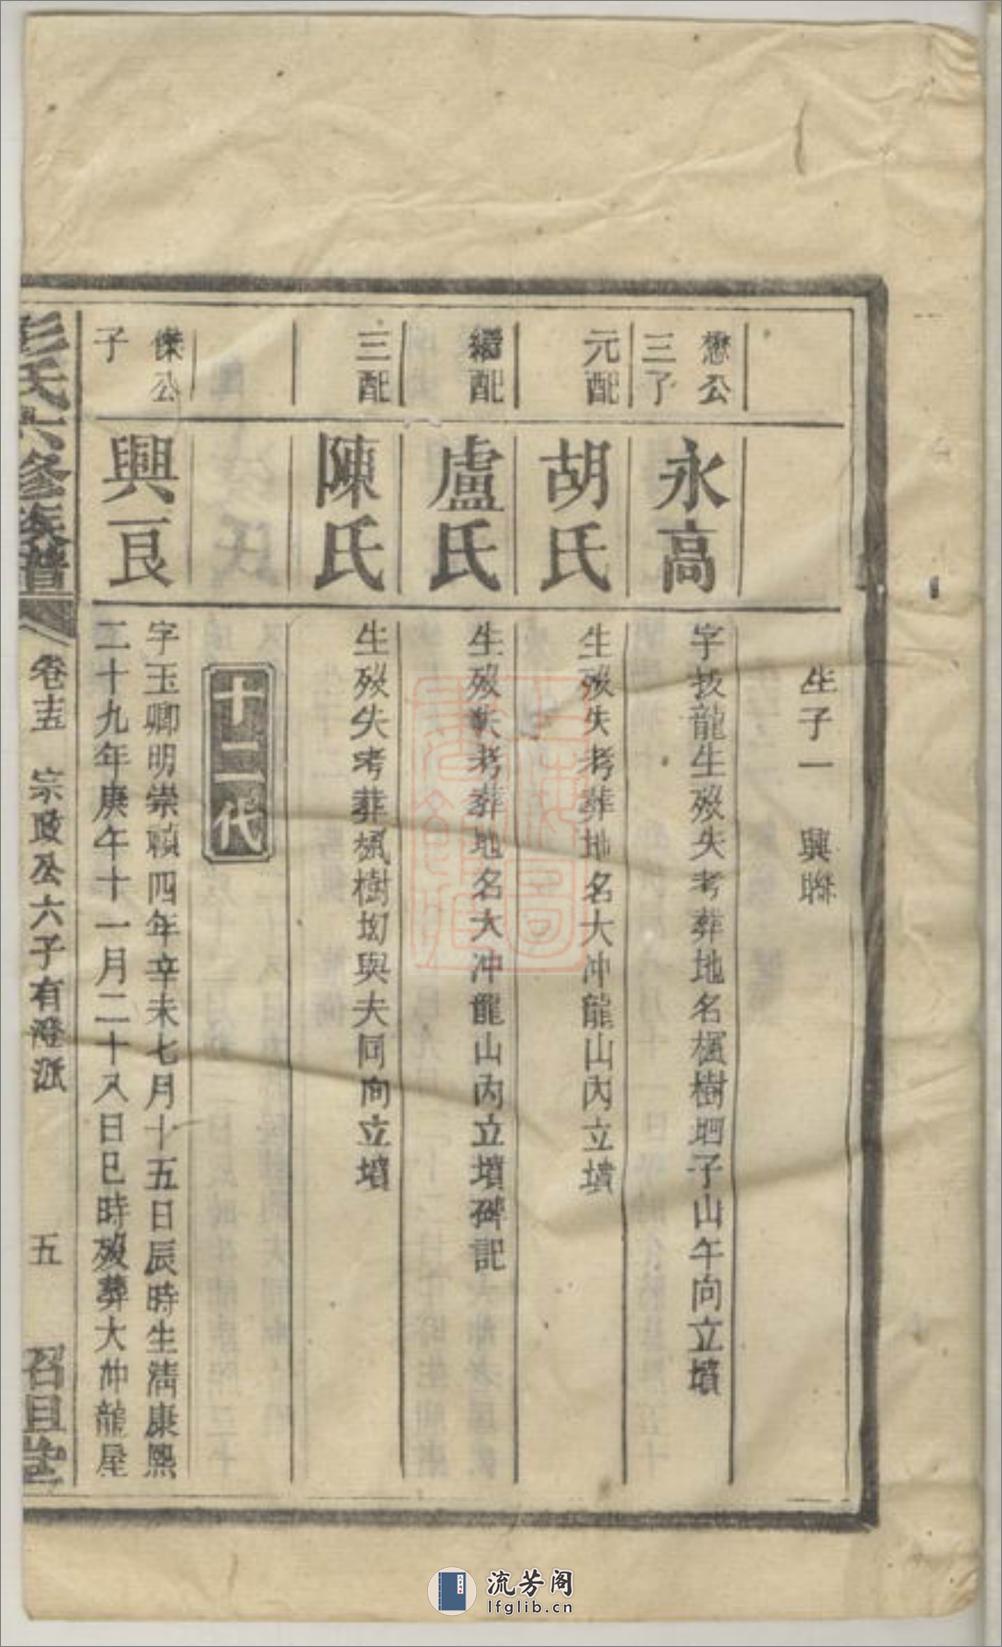 生子一 興聯
懋公三子
永高
字拔龍生歿失考葬地名楓樹坳子山午向立墳
元配
胡氏
生歿失考葬地名大冲龍山內立墳
繼配
盧氏
生歿失考葬地名大冲龍山內立墳碑記
三配
陳氏
生歿失考葬楓樹坳與夫同向立墳
十二代
傑公子
興艮
字玉卿明崇禎四年辛未七月十五日辰時生清康熙
二十九年庚午十一月二十八日巳時歿葬大冲龍屋
彭氏六修族譜 卷十五 宗政公六子有澄派 五
流芳阁
lfglib.cn